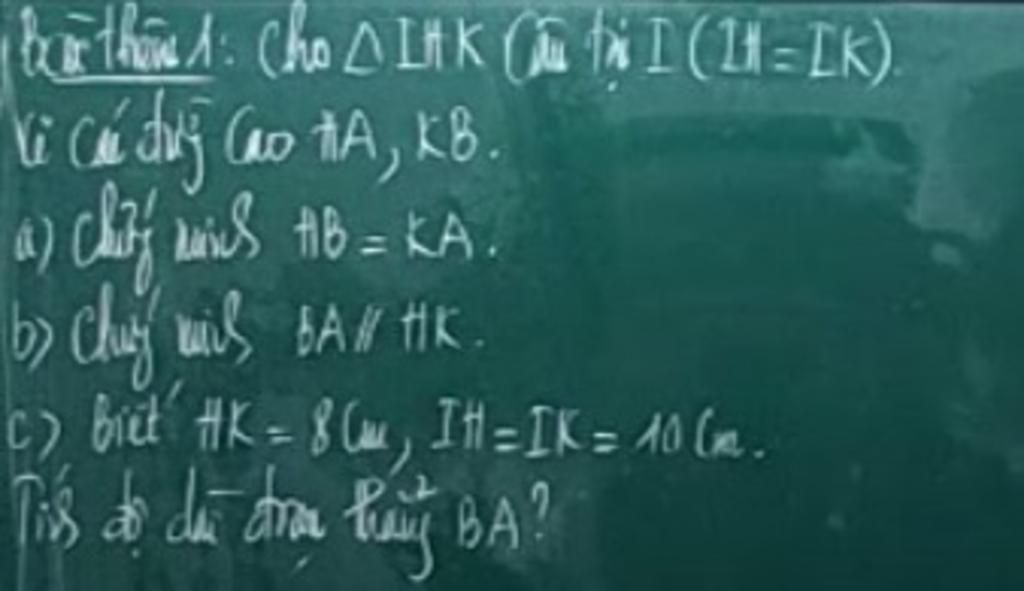 Bài thêm 1: Cho △ IHK Cân tại I (IH = IK).
Vẽ các đường Cao HA, KB.
a) Chứng minh HB = KA.
b) Chứng minh BA // HK.
c) Biết HK = 8 Cm, IH = IK = 10 Cm.
Tính độ dài đoạn thẳng BA?